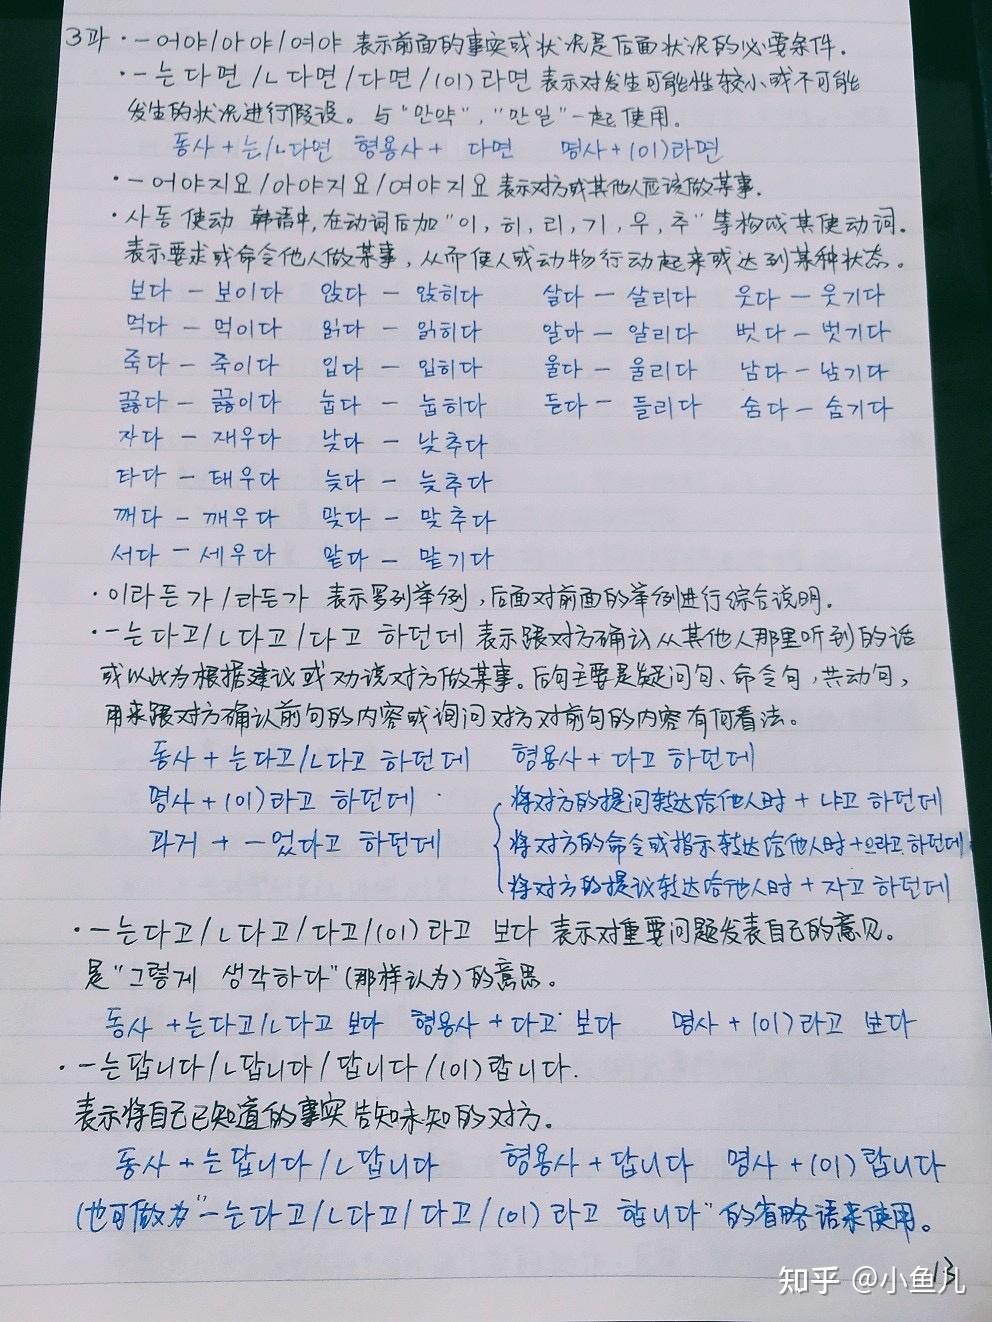 3과 · -어야/아야/여야 表示前面的事实或状况是后面状况的必要条件.
· -는다면/ㄴ다면/다면/(이)라면 表示对发生可能性较小或不可能
发生的状况进行假设。与"만약","만일"一起使用.
동사+는/ㄴ다면 형용사+ 다면 명사+(이)라면
· -어야지요/아야지요/여야지요 表示对方或其他人应该做某事.
· 사동 使动 韩语中,在动词后加"이, 히, 리, 기, 우, 추"等构成其使动词.
表示要求或命令他人做某事,从而使人或动物行动起来或达到某种状态.
보다 - 보이다 앉다 - 앉히다 살다 - 살리다 웃다 - 웃기다
먹다 - 먹이다 읽다 - 읽히다 알다 - 알리다 벗다 - 벗기다
죽다 - 죽이다 입다 - 입히다 울다 - 울리다 남다 - 남기다
끓다 - 끓이다 눕다 - 눕히다 듣다 - 들리다 숨다 - 숨기다
자다 - 재우다 낮다 - 낮추다
타다 - 태우다 늦다 - 늦추다
깨다 - 깨우다 맞다 - 맞추다
서다 - 세우다 맡다 - 맡기다
· 이라든가/라든가 表示罗列举例,后面对前面的举例进行综合说明.
· -는다고/ㄴ다고/다고 하던데 表示跟对方确认从其他人那里听到的话
或以此为根据建议或劝说对方做某事。后句主要是疑问句、命令句,共动句,
用来跟对方确认前句的内容或询问对方对前句的内容有何看法。
동사+는다고/ㄴ다고 하던데 형용사+다고 하던데
명사+(이)라고 하던데 将对方的提问转达给他人时+냐고 하던데
과거 + -었다고 하던데 将对方的命令或指示转达给他人时+으라고 하던데
将对方的提议转达给他人时+자고 하던데
· -는다고/ㄴ다고/다고/(이)라고 보다 表示对重要问题发表自己的意见。
是"그렇게 생각하다"(那样认为)的意思。
동사 +는다고/ㄴ다고 보다 형용사+다고 보다 명사+(이)라고 보다
· -는답니다/ㄴ답니다/답니다/(이)랍니다.
表示将自己已知道的事实告知未知的对方。
동사+는답니다/ㄴ답니다 형용사+답니다 명사+(이)랍니다
(也可做为"-는다고/ㄴ다고/다고/(이)라고 합니다"的省略语来使用。
13
知乎 @小鱼儿